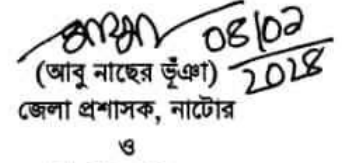 08/02
2028
(আবু নাছের ভূঁঞা)
জেলা প্রশাসক, নাটোর
ও